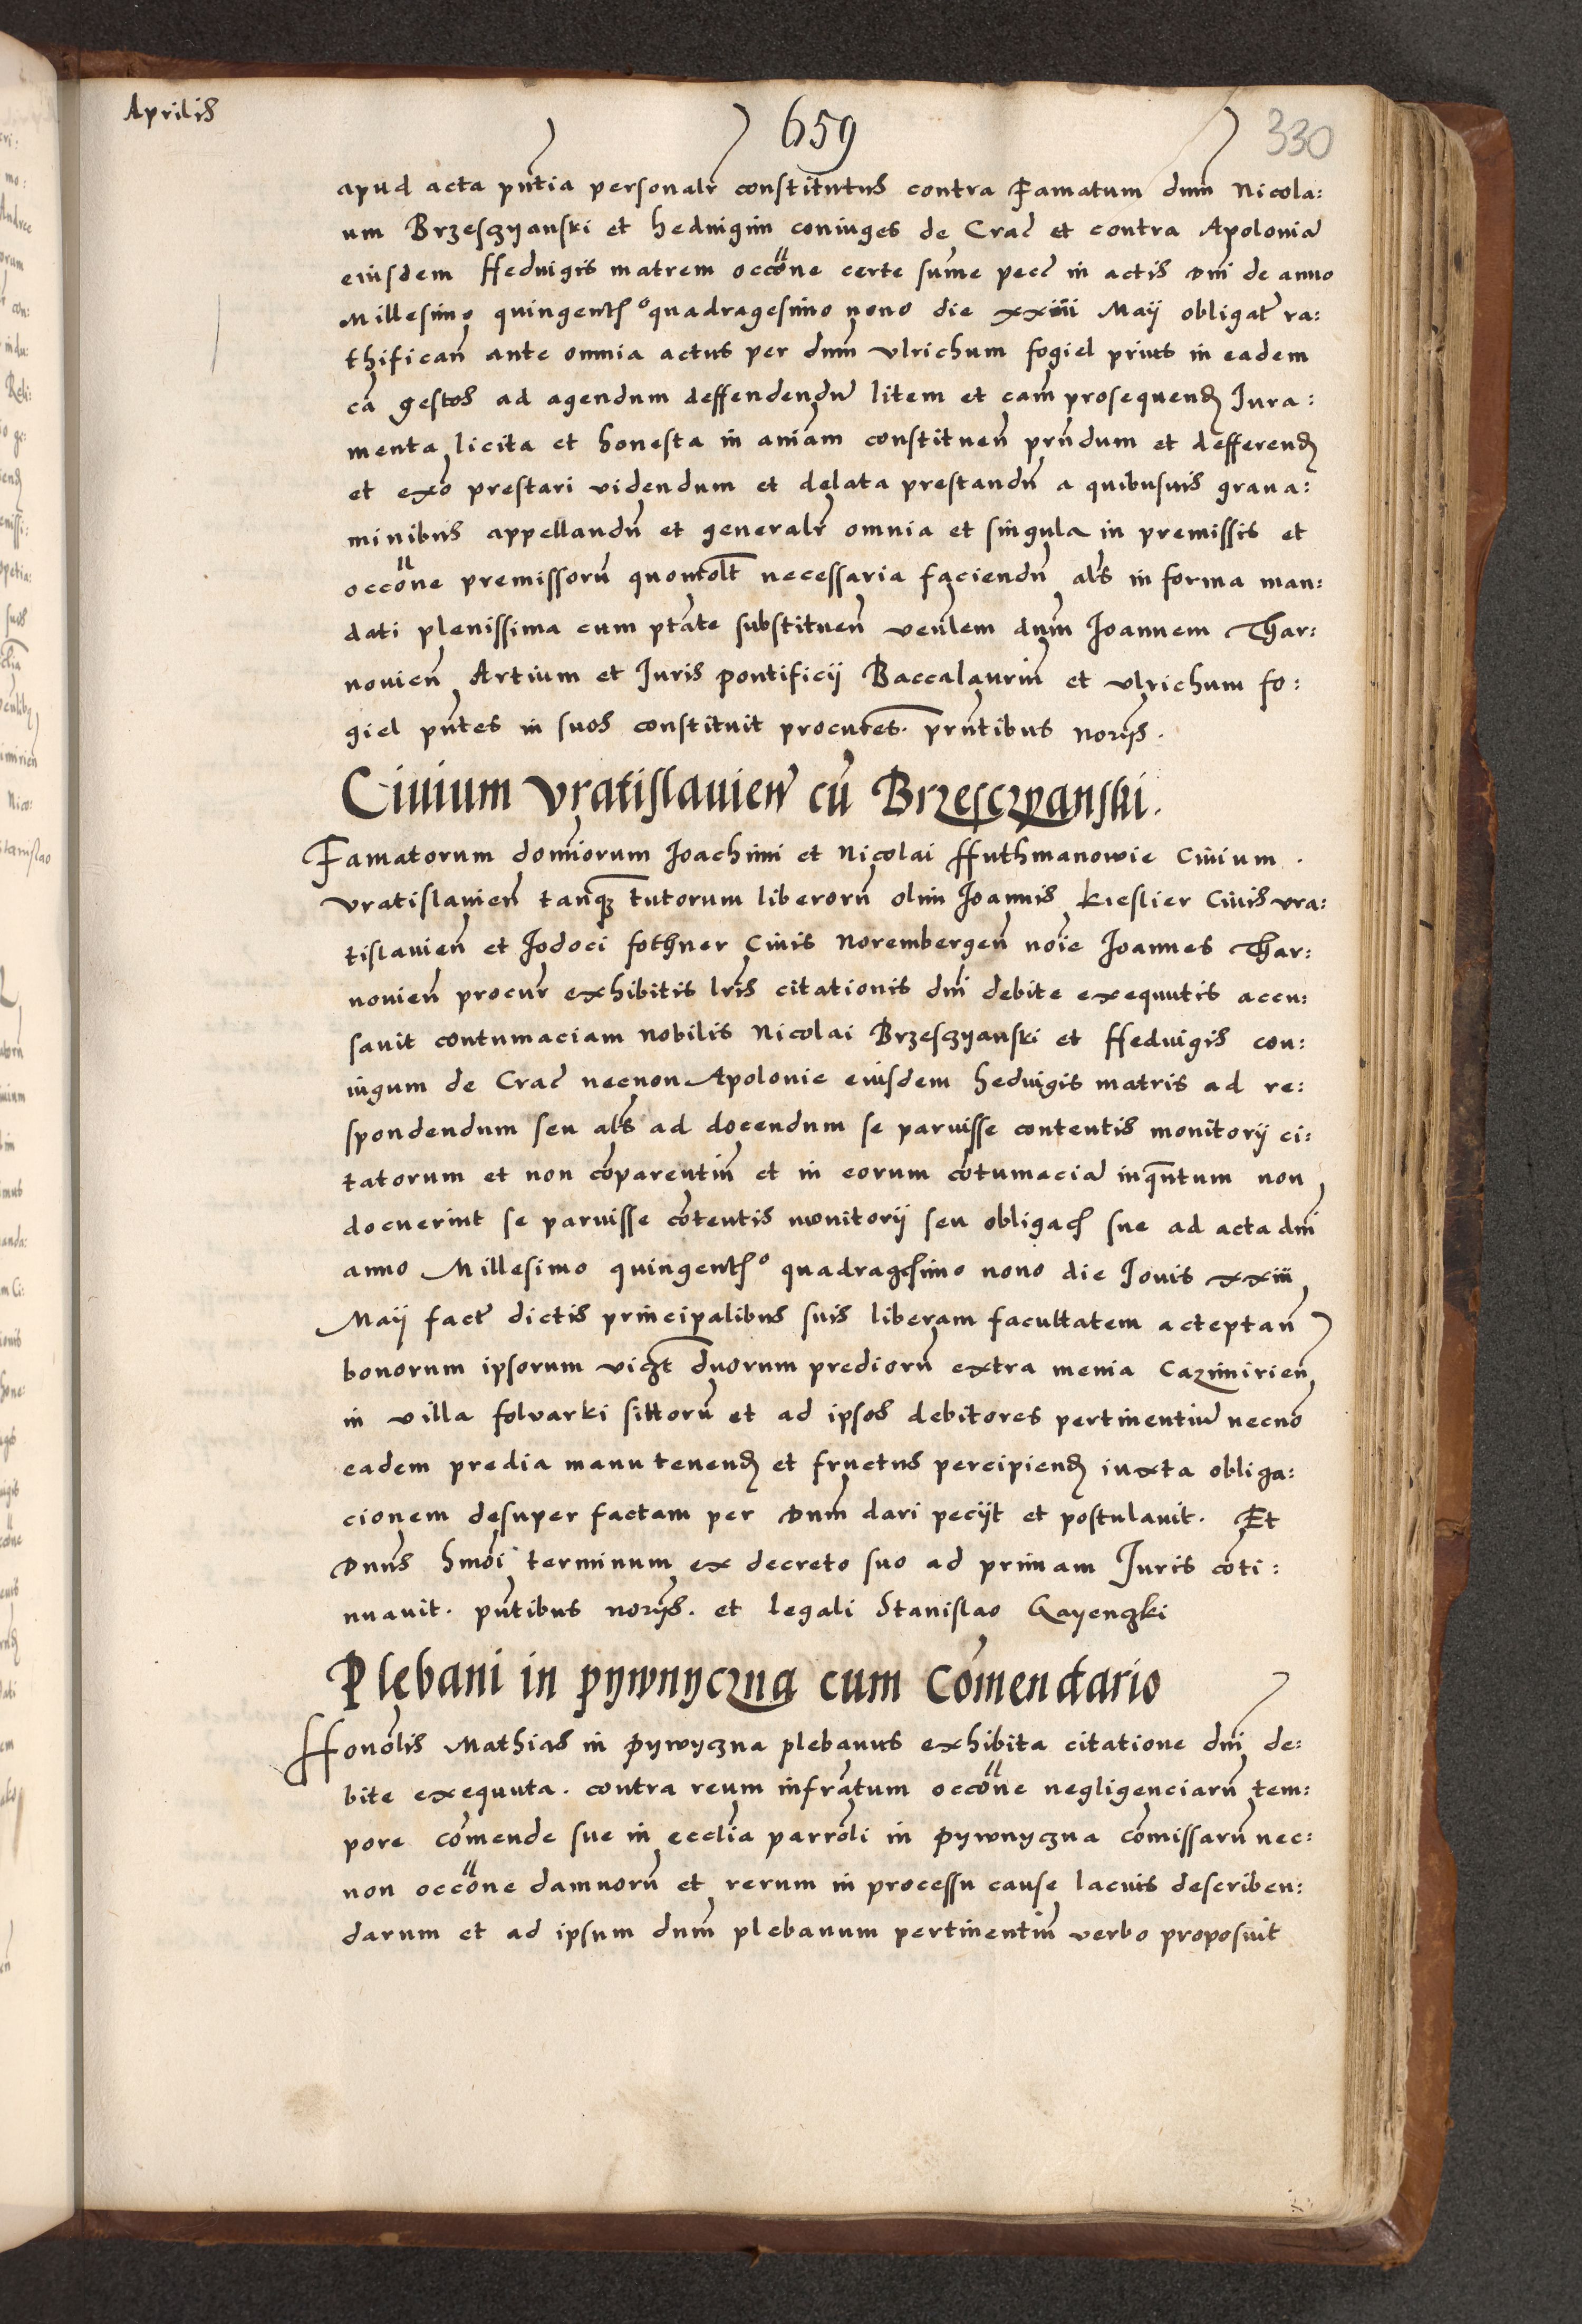 Aprilis
659
330
apud acta pñtia personalr̃ constitutus contra Famatum dnm̃ Nicola:
um Brzesczyanski et heduigim coniuges de Crac̃ et contra Apoloniã
eiusdem Heduigis matrem occõne certe sum̃e pecc̃ in actis Dni de anno
Millesimo quingentes° quadragesimo nono die xxiiii Maij obligat̃ ra:
thifican̄ ante omnia actus per dnm̃ Vlrichum fogiel prius in eadem
cã gestos ad agendum deffendendũ litem et cam̃ prosequend Jura:
menta licita et honesta in aniãm constituen̄ prñdum et defferend
et exõ prestari videndum et delata prestandũ a quibusuis graua:
minibus appellandũ et generalr̃ omnia et singula in premissis et
occõne premissorũ quomolt̃ necessaria faciendũ als̃ in forma man:
dati plenissima cum ptãte substituen̄ venlem dnm̃ Joannem Thar:
nouien̄ Artium et Juris pontificij Baccalaurũm et Vlrichum fo:
giel pñtes in suos constituit procutes. prñtibus norijs.
Ciuium Vratislauien̄ cũ Brzesczyanski.
Famatorum dominorum Joachimi et Nicolai Huthmanowie Ciuium
vratislauien̄ tanq̃ tutorum liberorũ olim Joannis Kieslier Ciuis vra:
tislauien̄ et Jodoci fothner Ciuis Norembergen̄ noĩe Joannes Thar:
nouien̄ procur̃ exhibitis lr̃is citationis dnĩ debite exequutis accu:
sauit contumaciam nobilis Nicolai Brzesczyanski et Heduigis con:
iugum de Crac̃ necnon Apolonie eiusdem heduigis matris ad re:
spondendum seu als̃ ad docendum se paruisse contentis monitorij ci:
tatorum et non cõparentiũm et in eorum cõtumaciã inqñtum non
docuerint se paruisse cõtentis monitorij seu obligac̃ sue ad acta dnĩ
anno Millesimo quingentes° quadragesimo nono die Jouis xxiii
Maij fact̃ dictis principalibus suis liberam facultatem acteptan̄
bonorum ipsorum vicz̃t duorum prediorũ extra menia Cazimirien̄
in villa folvarki sittorũ et ad ipsos debitores pertinentiũ necnõ
eadem predia manu tenend et fructus percipiend iuxta obliga:
cionem desuper factam per Dnm̃ dari pecijt et postulauit. Et
Dnus̃ hmõi terminum ex decreto suo ad primam Juris cõti:
nuauit. pñtibus norijs. et legali Stanislao Gayenczki
Plebani in pywnyczna cum Cõmendario
Honõlis Mathias in Pywyczna plebanus exhibita citatione dnĩ de:
bite exequuta. contra reum infrãtum occõne negligenciarũ tem:
pore cõmende sue in ecclĩa parrõli in Pywnyczna cõmissarũ nec:
non occõne damnorũ et rerum in processu cause lacius describen:
darum et ad ipsum dnm̃ plebanum pertinentiũm verbo proposuit